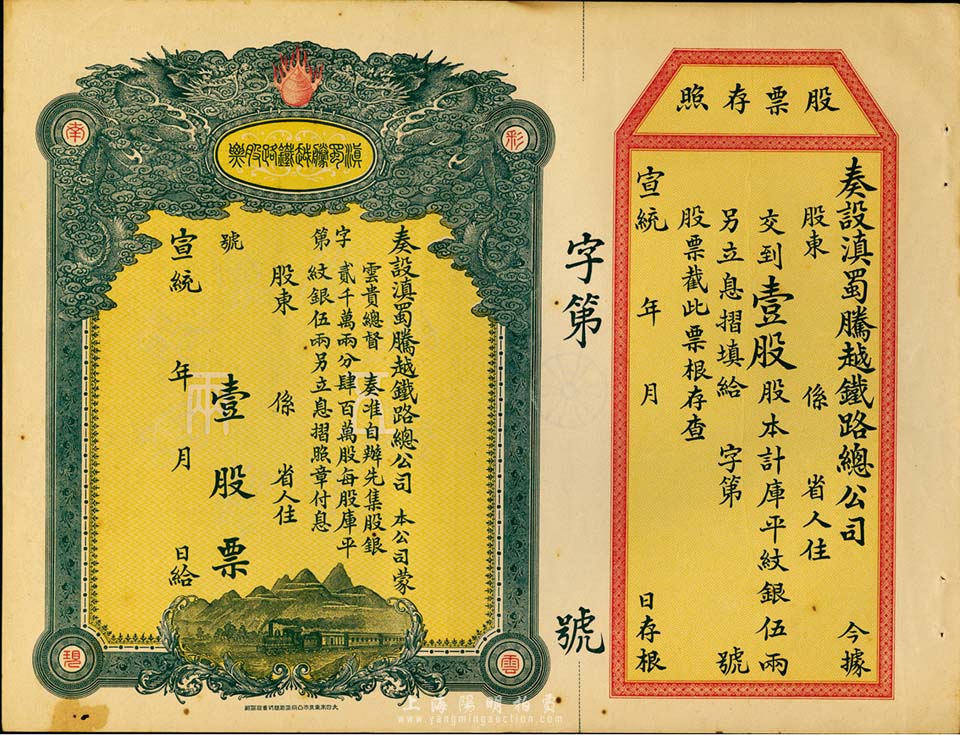 股票存照
奏設滇蜀騰越鐵路總公司 今據
股東 係 省人住
交到壹股股本計庫平紋銀伍兩
另立息摺填給 字第 號
股票截此票根存查
宣統 年 月 日存根
字第 號
滇蜀騰越鐵路股票
彩
雲
南
現
奏設滇蜀騰越鐵路總公司 本公司蒙
雲貴總督 奏准自辦先集股銀
貳千萬兩分肆百萬股每股庫平
紋銀伍兩另立息摺照章付息
字第 號
股東 係 省人住
壹股票
宣統 年 月 日給
伍兩
上海陽明拍賣
www.yangmingauction.com